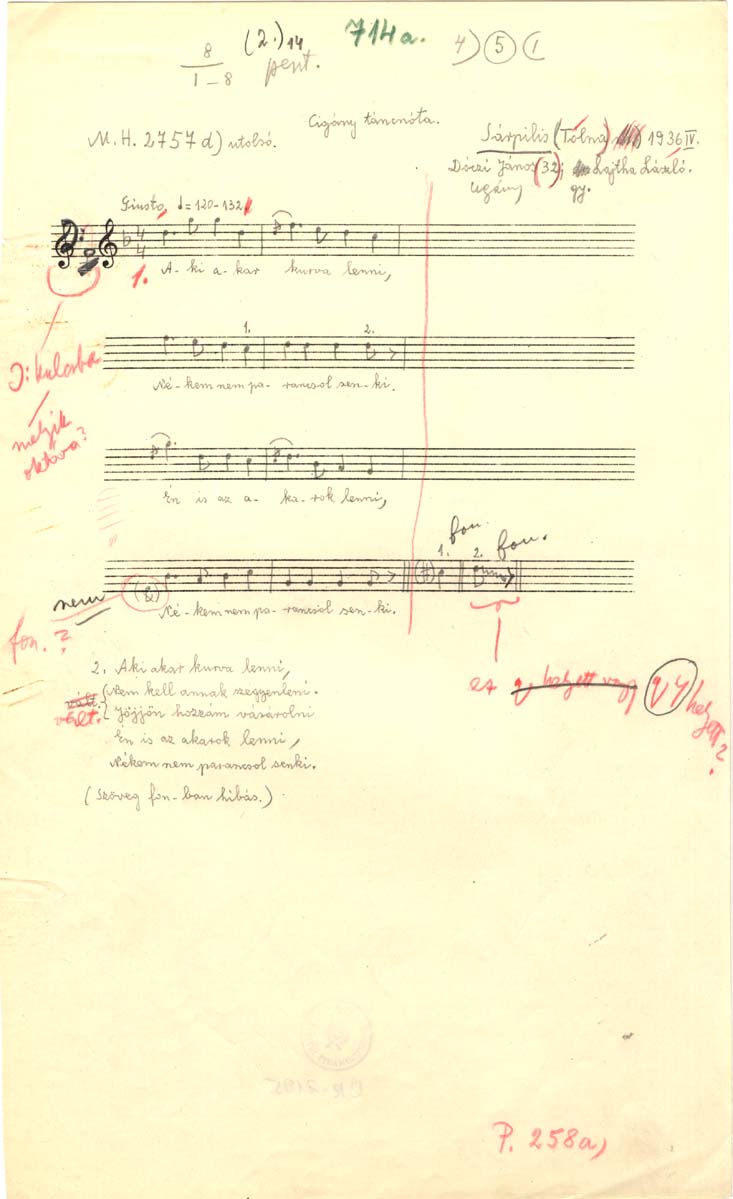 8 (2.) 14 714a. 4) 5 (
1-8 pent.
Cigány táncnóta.
M.H. 2757d) utolsó. Sárpilis (Tolna) 1936 IV.
Dóczi János (32); Lajtha László.
cigány gy.
Giusto, ♩=120-132.
4
4
1. A-ki a-kar kurva lenni,
1. 2.
Né-kem nem pa-rancsol sen-ki.
J: kulcsba
melyik
oktáva?
Én is az a-ka-rok lenni,
fon. fon.
1. 2.
nem
Né-kem nem pa-rancsol sen-ki.
fon.?
ez helyett vagy helyett?
2. Aki akar kurva lenni,
vált. Nem kell annak szegyenleni.
vált. Jöjjön hozzám vásárolni
Én is az akarok lenni,
Nékem nem parancsol senki.
(Szöveg fon-ban hibás.)
P. 258a)